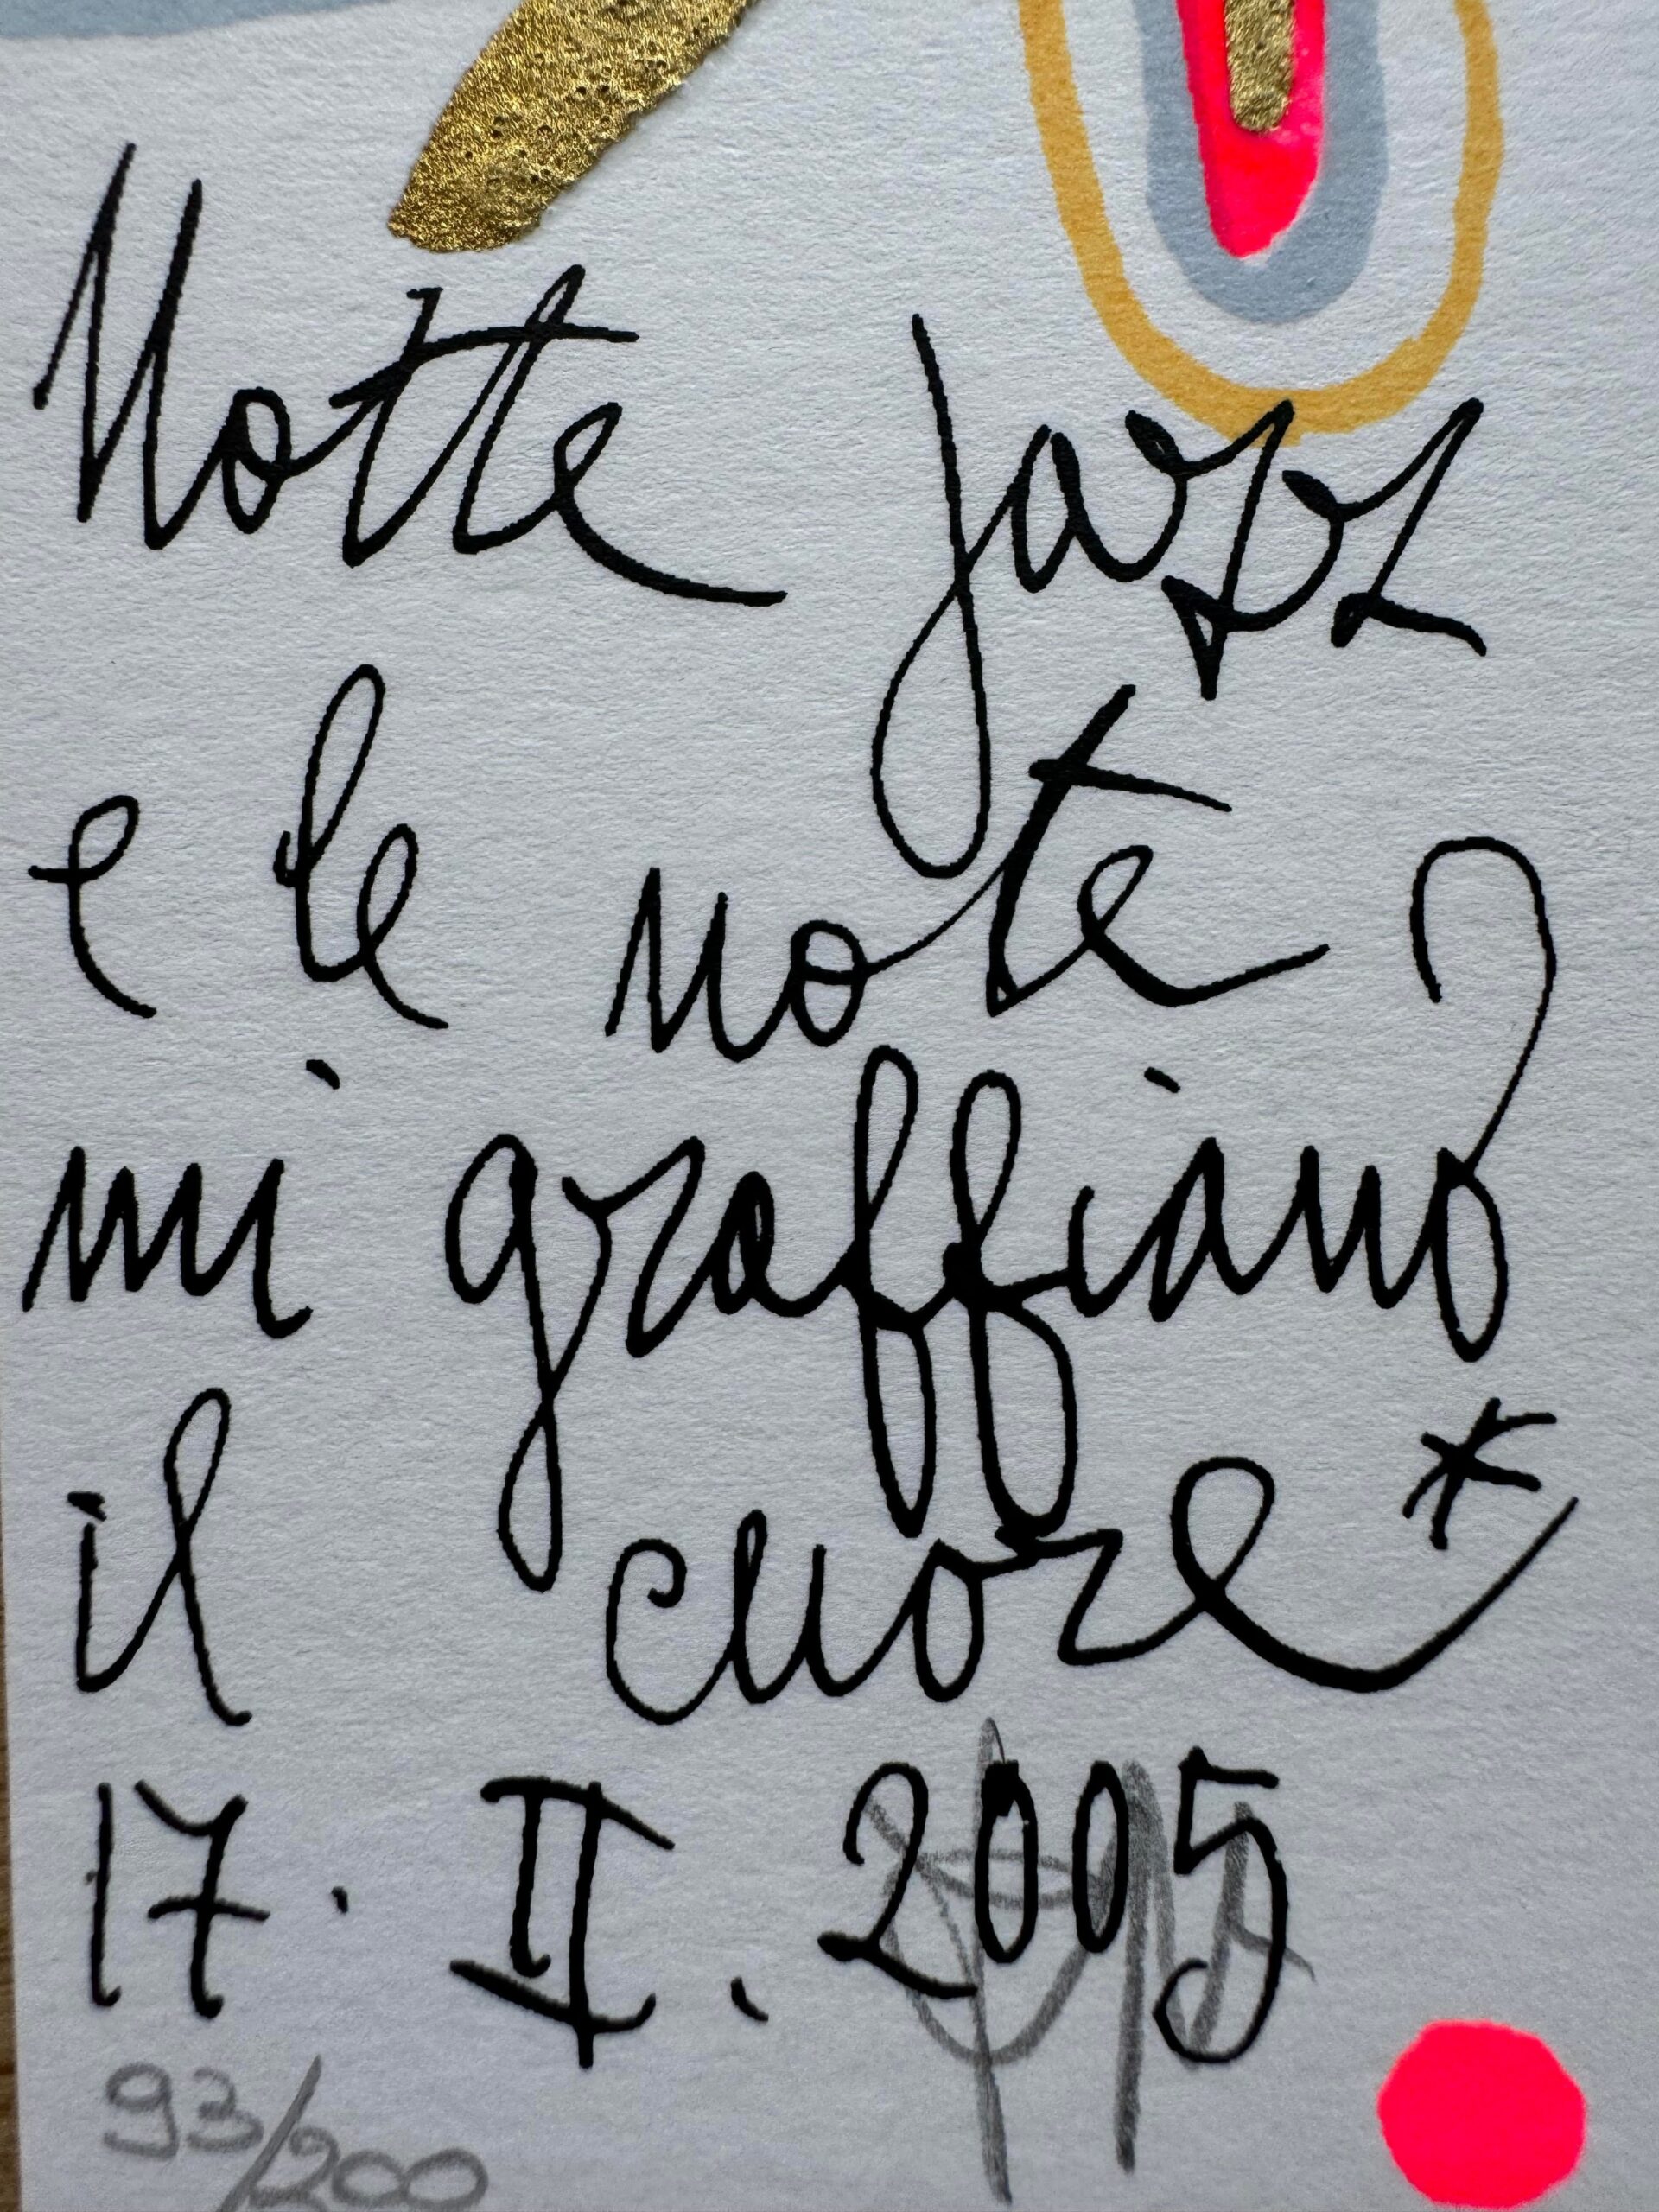 Notte jazz
e le note
mi graffiano
il cuore*
17. II. 2005
93/200